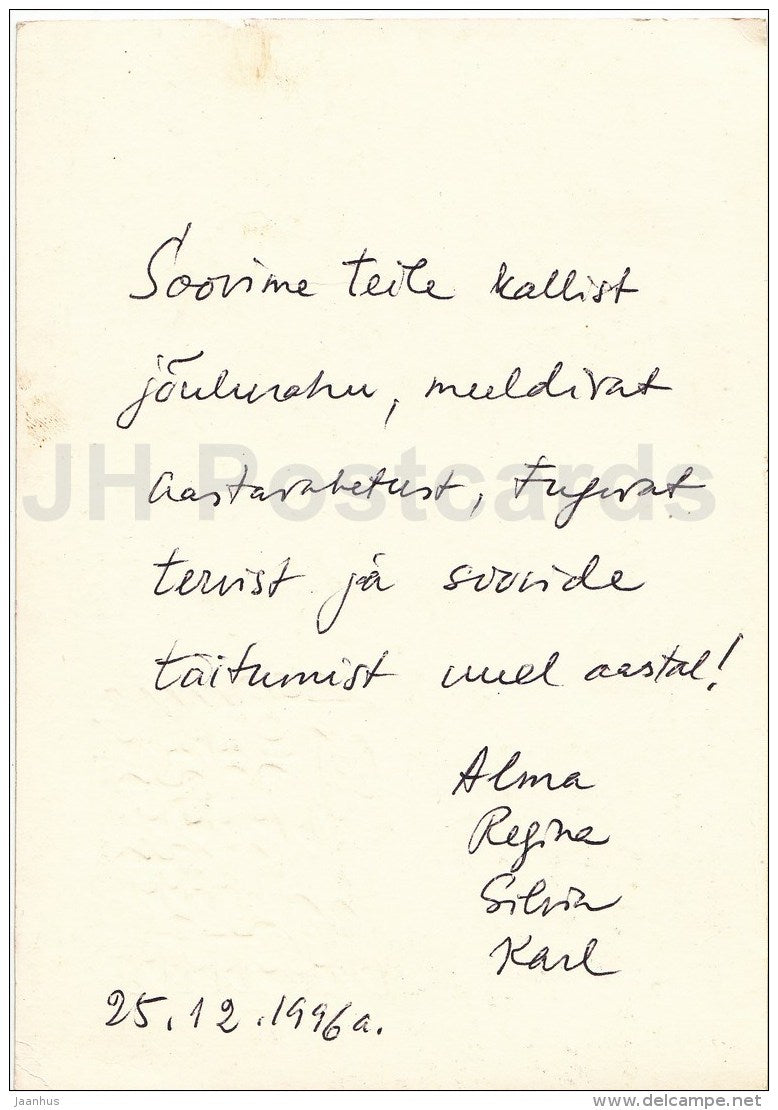 Soovime teile kallist
jõulurahu, meeldivat
JH Postcards
aastavahetust, tugevat
tervist ja soovide
täitumist uuel aastal!
Alma
Regina
Silvia
Karl
25.12.1996a.
Jaanhus
www.delcampe.net